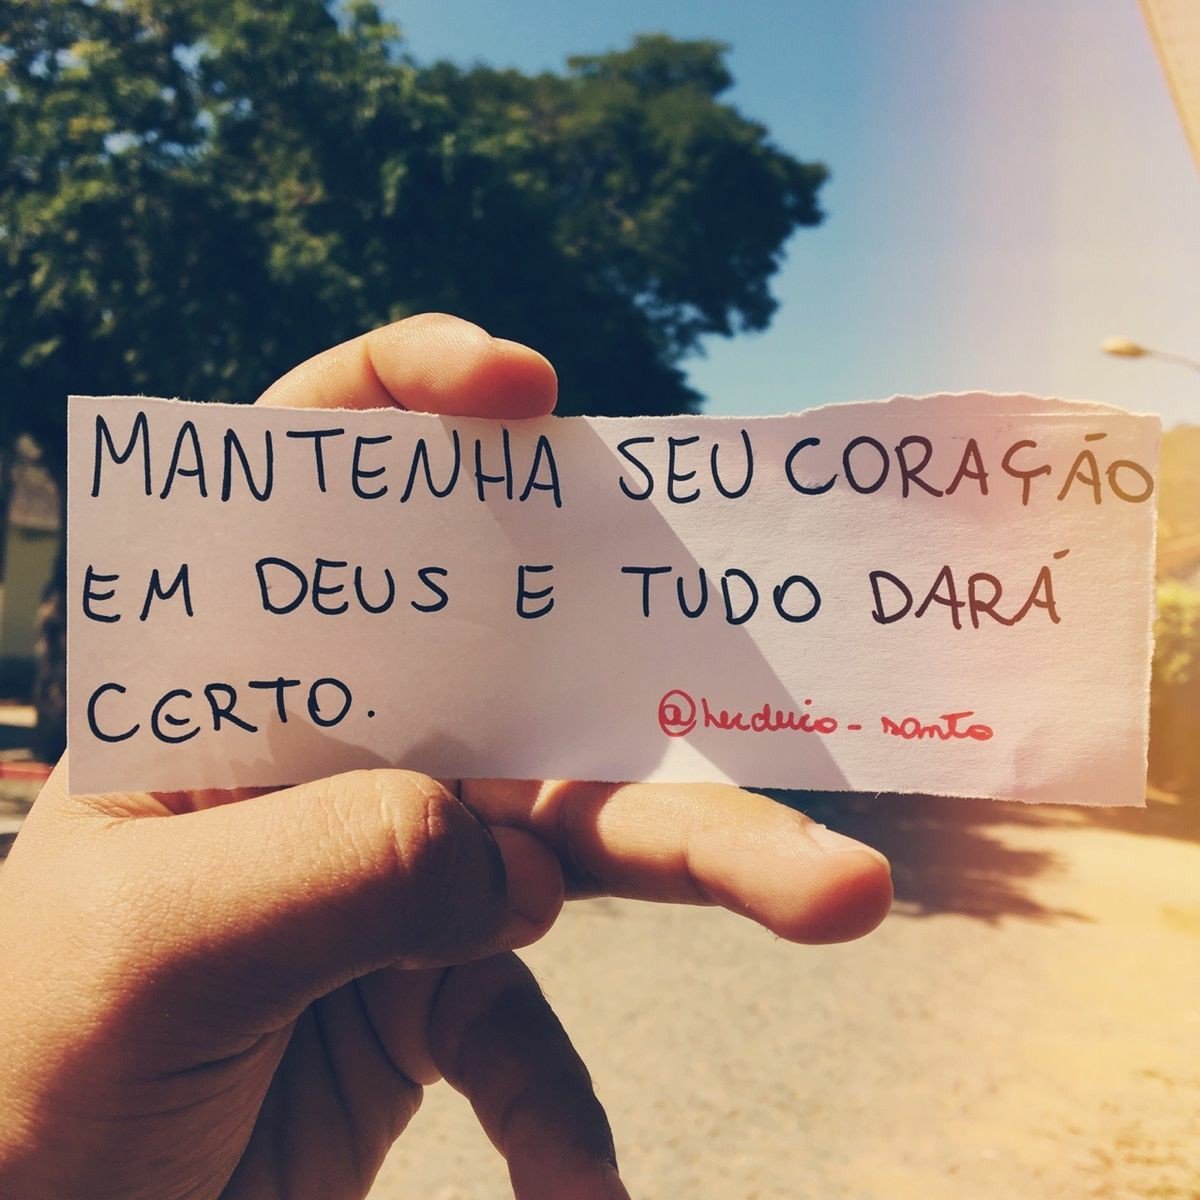 MANTENHA SEU CORAÇÃO
EM DEUS E TUDO DARÁ
CERTO.